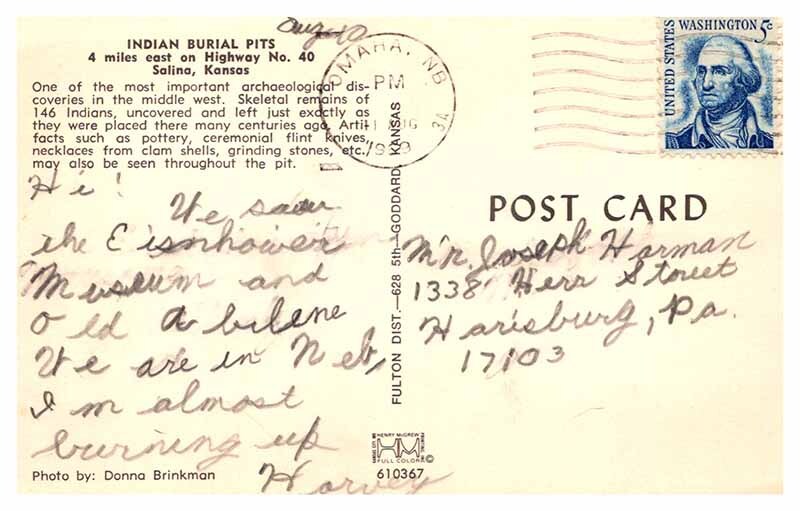 Aug 10
INDIAN BURIAL PITS
4 miles east on Highway No. 40
Salina, Kansas
One of the most important archaeological dis-
coveries in the middle west. Skeletal remains of
146 Indians, uncovered and left just exactly as
they were placed there many centuries ago. Arti-
facts such as pottery, ceremonial flint knives,
necklaces from clam shells, grinding stones, etc.
may also be seen throughout the pit.
Hi!
We saw
the Eisnhower
Museum and
Old Abilene
We are in Neb,
I'm almost
burning up
Harvey
Photo by: Donna Brinkman
FULTON DIST.—628 5th—GODDARD, KANSAS
HENRY McGREW PRINTING, INC.
KANSAS CITY, MO
HM
FULL COLOR
©
610367
OMAHA, NB
PM
3A
UNITED STATES
WASHINGTON 5c
POST CARD
Mr. Joseph Harman
1338 Herr Street
Harisburg, Pa.
17103